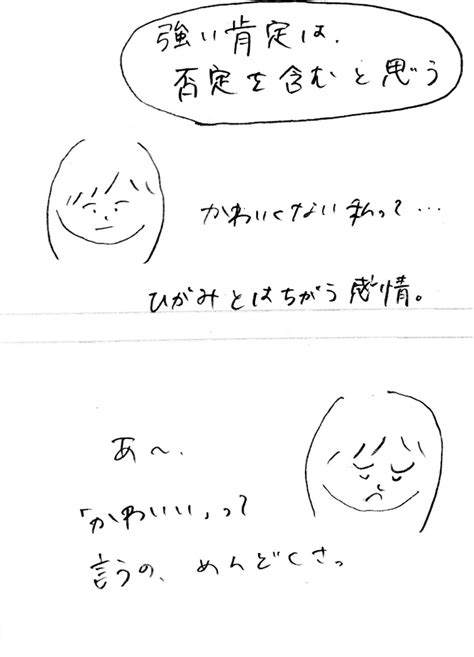 強い肯定は、
否定を含むと思う
かわいくない私って…
ひがみとはちがう感情。
あ〜、
「かわいい」って
言うの、めんどくさっ